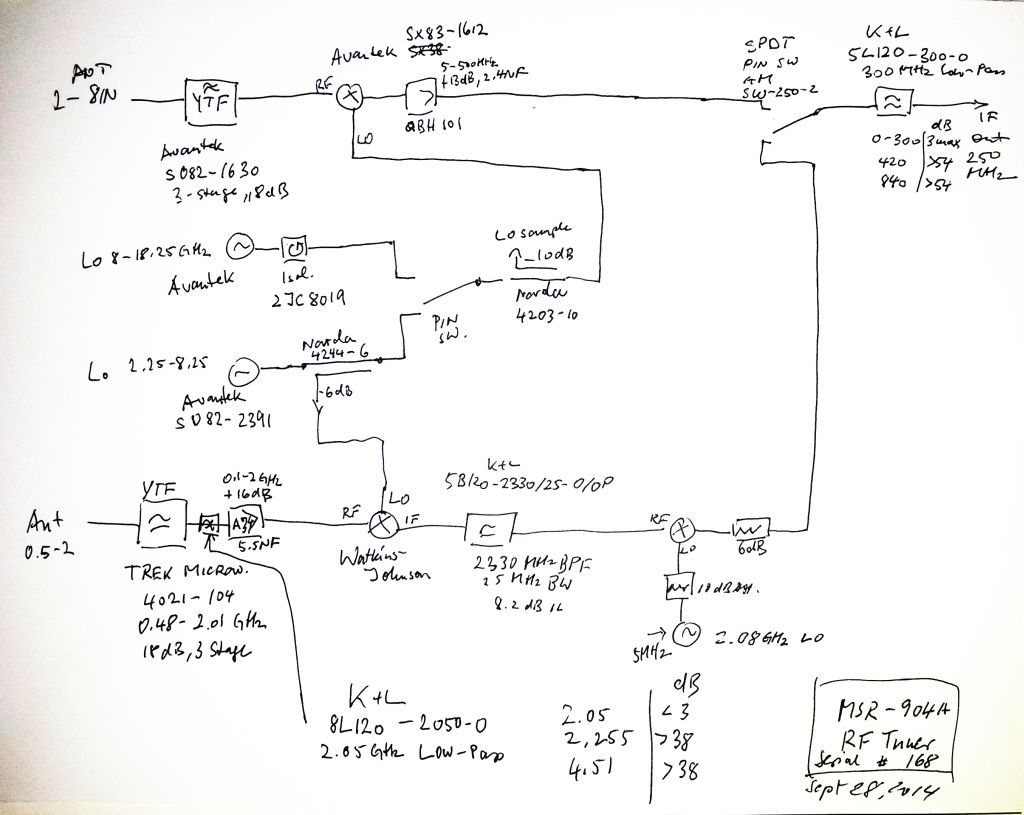 SX83-1612
Avantek
5-500MHz
+13dB, 2.4NF
SPDT
PIN SW
SW-250-2
K+L
5L120-300-0
300 MHz Low-Pass
ANT
2-8IN
YTF
RF
LO
QBH 101
IF
out
250
MHz
dB
0-300 3max
420 >54
840 >54
Avantek
S082-1630
3-stage, 18dB
Lo 8-18.25GHz
Avantek
Isol.
2JC8019
Lo sample
-10dB
Narda
4203-10
PIN
SW.
Narda
4244-6
Lo 2.25-8.25
Avantek
S082-2391
-6dB
K+L
5B120-2330/25-0/OP
YTF
0.1-2GHz
+16dB
A34
5.5NF
Ant
0.5-2
RF
LO
IF
Watkins-
Johnson
2330 MHz BPF
25 MHz BW
8.2 dB IL
RF
LO
6dB
10dB Att.
5MHz
2.08GHz LO
TREK MICROW.
4021-104
0.48-2.01 GHz
18dB, 3 Stage
K+L
8L120-2050-0
2.05GHz Low-Pass
dB
2.05 <3
2.255 >38
4.51 >38
MSR-904A
RF Tuner
Serial # 168
Sept 28, 2014